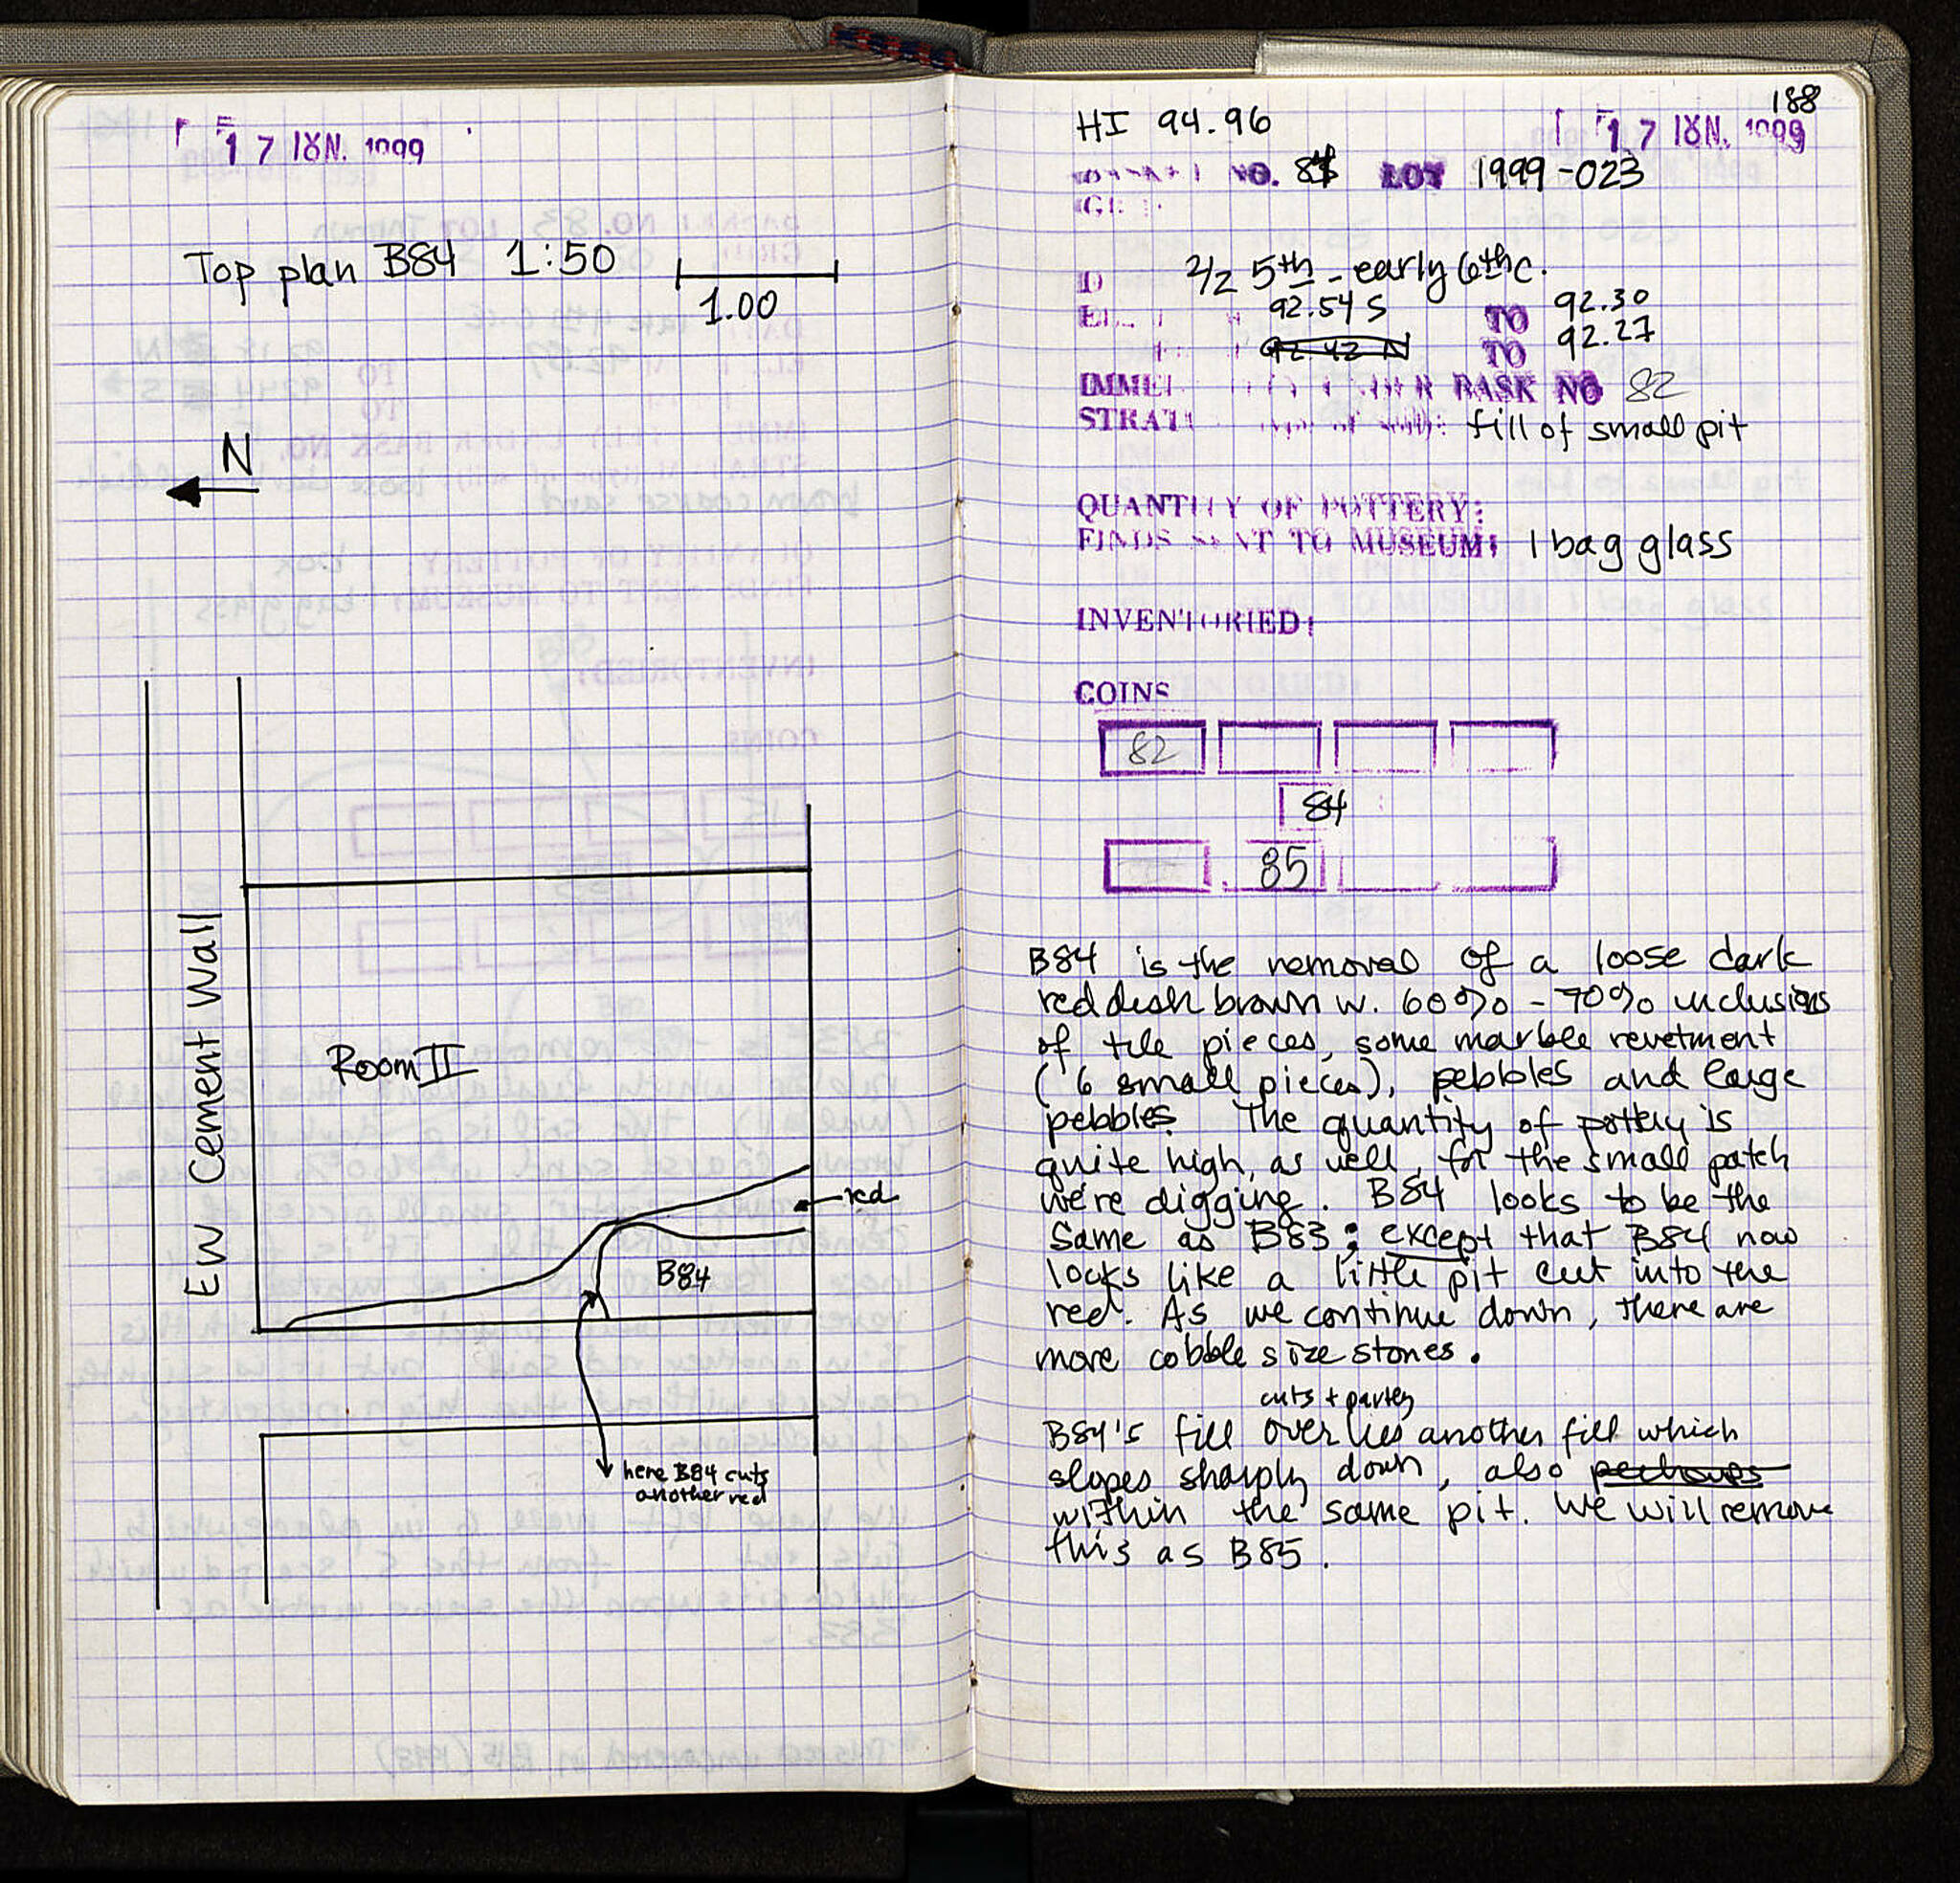 17 ΙΟΥΝ. 1999
Top plan B84 1:50
1.00
N
EW Cement Wall
Room II
red
B84
here B84 cuts
another red
188
HI 94.96
17 ΙΟΥΝ. 1999
NO. 84 LOT 1999-023
2/2 5th - early 6th c.
92.54 S TO 92.30
92.42 N TO 92.27
BASK NO 82
fill of small pit
QUANTITY OF POTTERY:
FINDS SENT TO MUSEUM: 1 bag glass
INVENTORIED:
COINS
82
84
85
B84 is the removal of a loose dark
reddish brown w. 60% - 70% inclusions
of tile pieces, some marble revetment
(6 small pieces), pebbles and large
pebbles. The quantity of pottery is
quite high, as well, for the small patch
we're digging. B84 looks to be the
same as B83; except that B84 now
looks like a little pit cut into the
red. As we continue down, there are
more cobble size stones.
cuts + partly
B84's fill overlies another fill which
slopes sharply down, also perhaps
within the same pit. We will remove
this as B85.